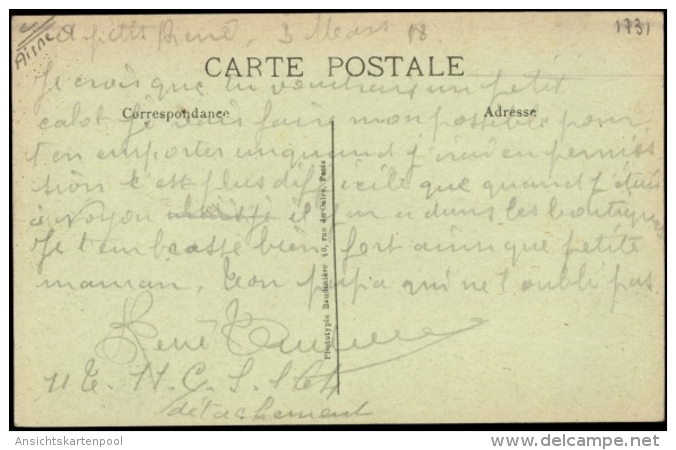 Aisne
A petit René, 3 Mars 18
1731
CARTE POSTALE
Correspondance
Adresse
Je crois que tu voudrais un petit
calot je vais faire mon possible pour
t'en emporter un quand j'irai en permis
sion c'est plus dificile que quand j'étais
à Noyon il y en a dans les boutiques
Je t'embrasse bien fort ainsi que petite
maman, ton papa qui ne t'oublie pas
René
détachement
Phototypie Baudinière 40, rue du Caire, Paris
Ansichtskartenpool